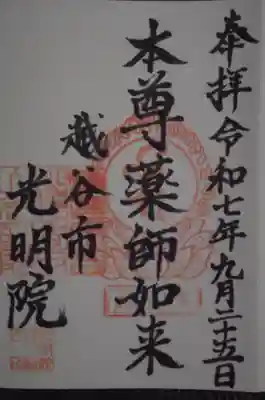 奉拝令和七年九月二十五日
本尊薬師如来
越谷市
光明院